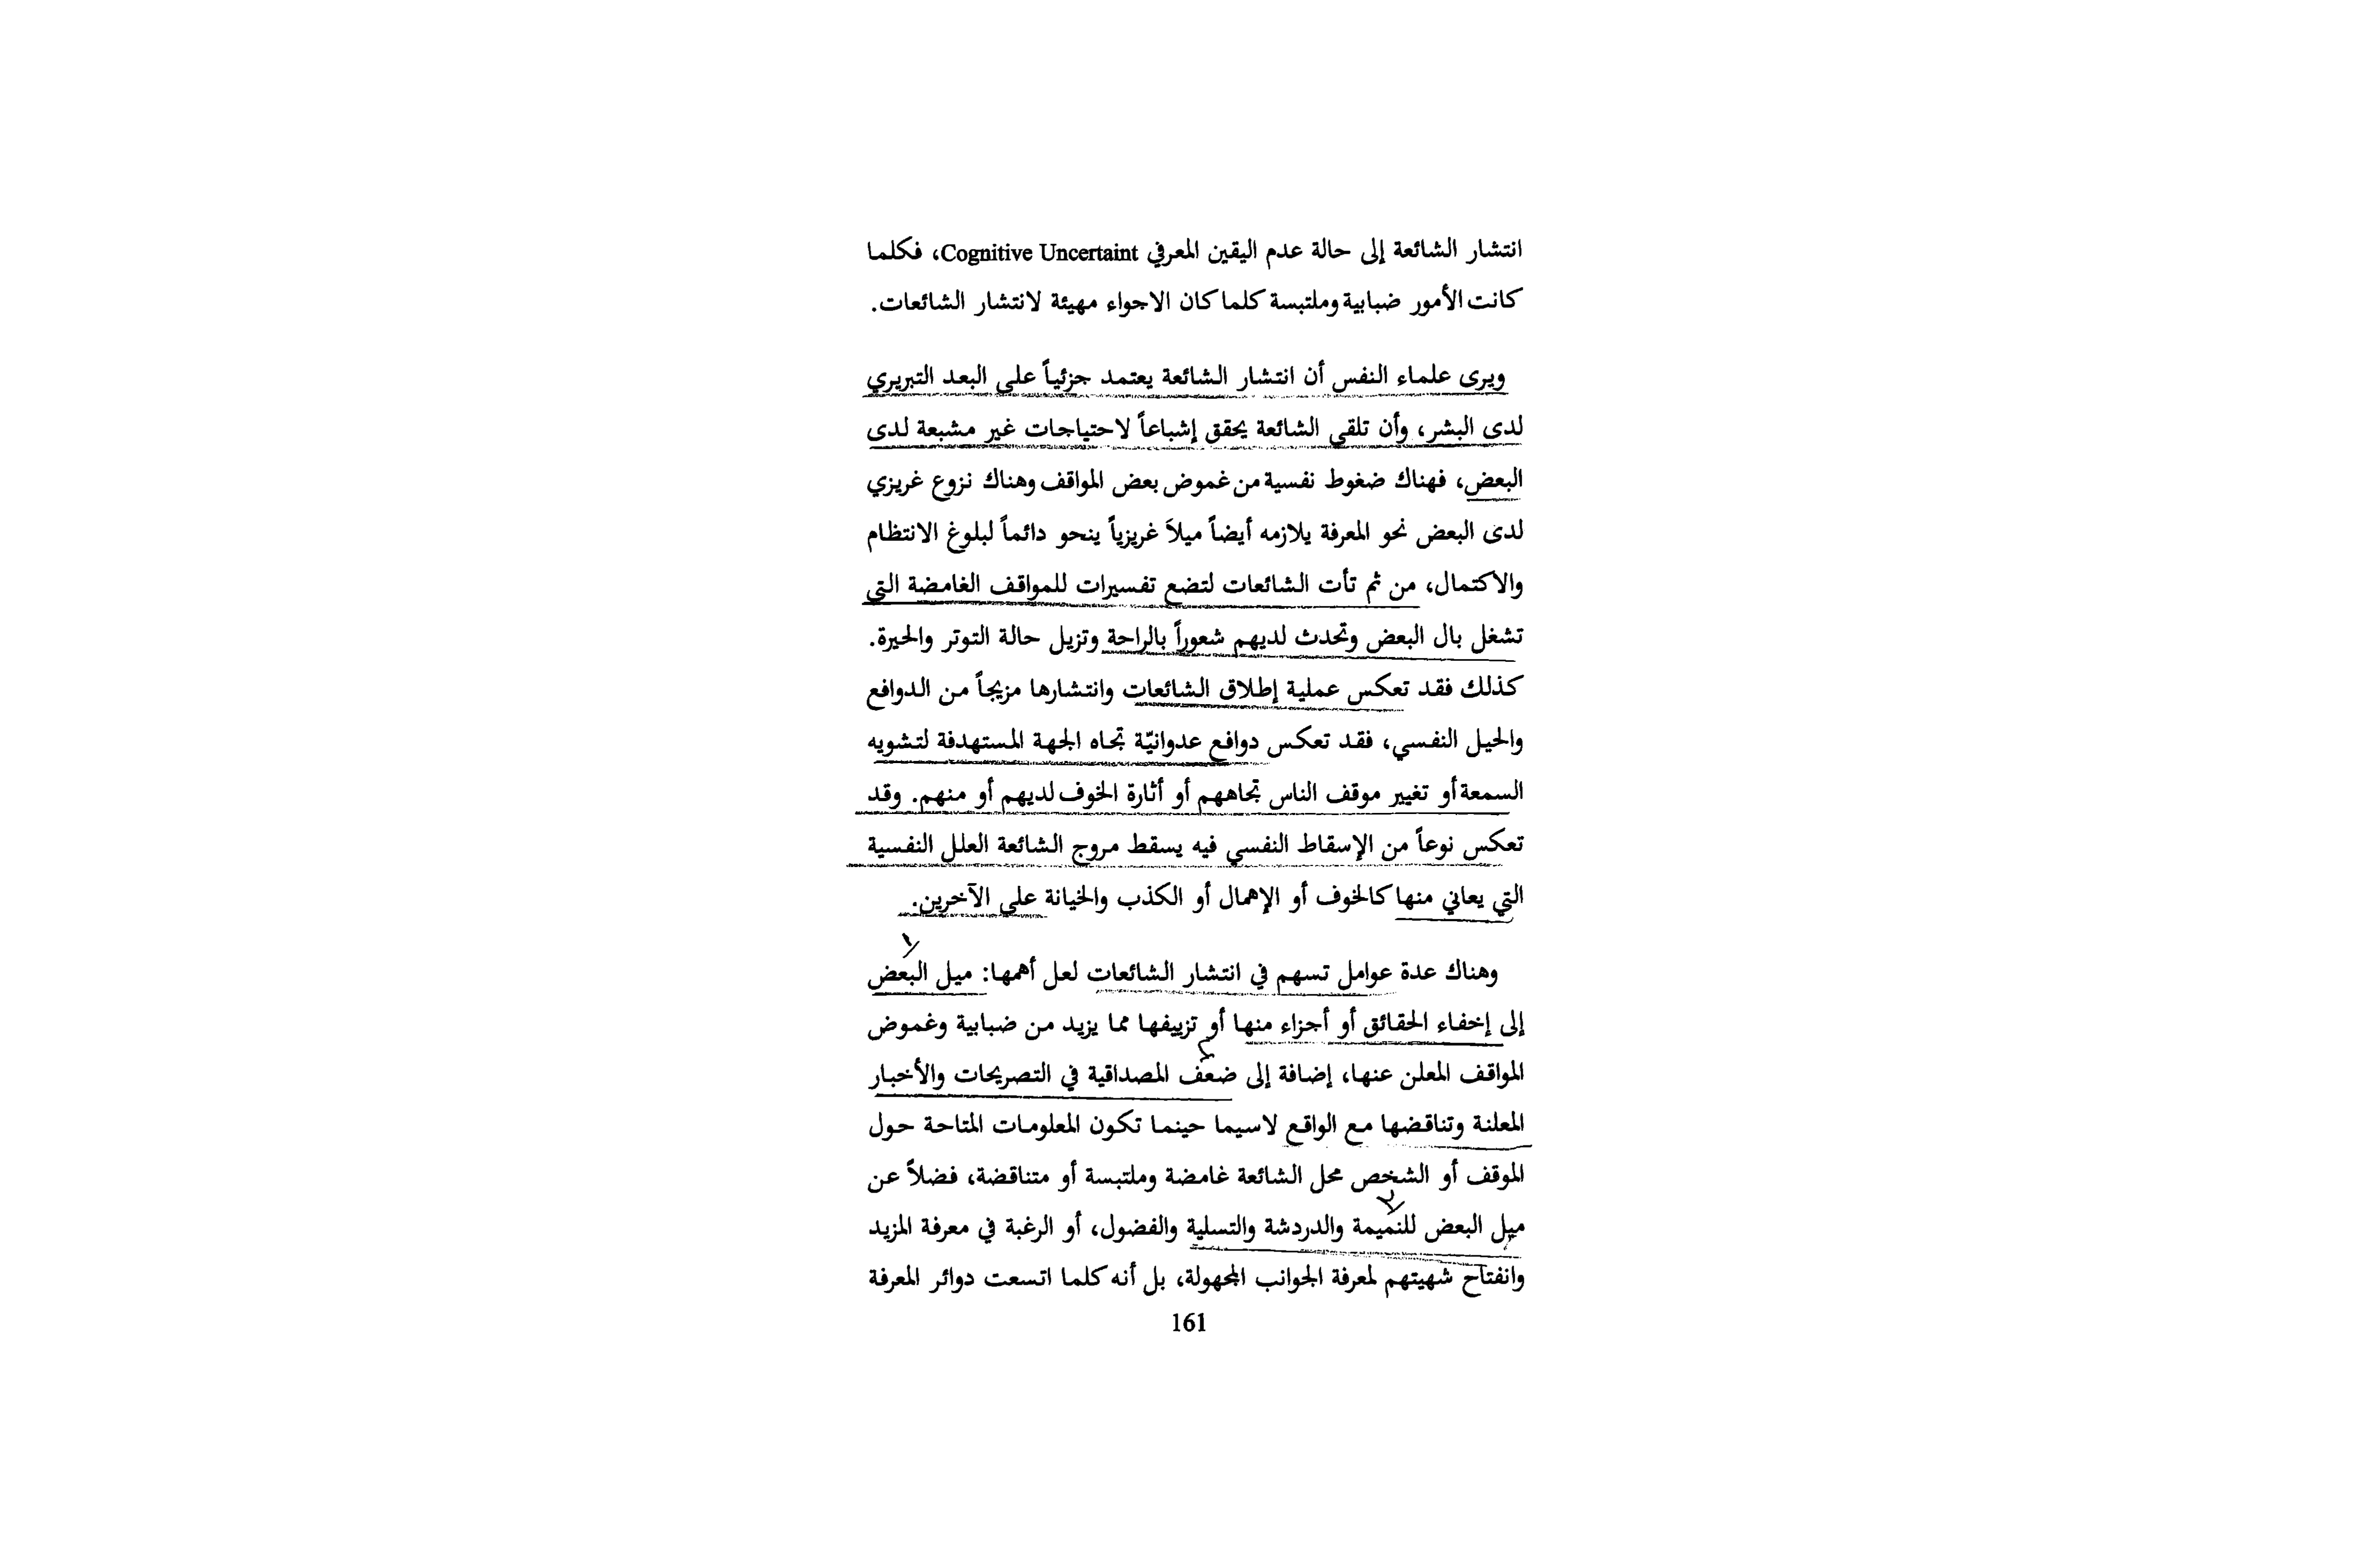 انتشار الشائعة إلى حالة عدم اليقين المعرفي Cognitive Uncertaint، فكلما
كانت الأمور ضبابية وملتبسة كلما كان الاجواء مهيئة لانتشار الشائعات.
ويرى علماء النفس أن انتشار الشائعة يعتمد جزئياً على البعد التبريري
لدى البشر، وأن تلقي الشائعة يحقق إشباعاً لاحتياجات غير مشبعة لدى
البعض، فهناك ضغوط نفسية من غموض بعض المواقف وهناك نزوع غريزي
لدى البعض نحو المعرفة يلازمه أيضاً ميلاً غريزياً ينحو دائماً لبلوغ الانتظام
والاكتمال، من ثم تأت الشائعات لتضع تفسيرات للمواقف الغامضة التي
تشغل بال البعض وتحدث لديهم شعوراً بالراحة وتزيل حالة التوتر والحيرة.
كذلك فقد تعكس عملية إطلاق الشائعات وانتشارها مزيجاً من الدوافع
والحيل النفسي، فقد تعكس دوافع عدوانيّة تجاه الجهة المستهدفة لتشويه
السمعة أو تغيير موقف الناس تجاههم أو أثارة الخوف لديهم أو منهم. وقد
تعكس نوعاً من الإسقاط النفسي فيه يسقط مروج الشائعة العلل النفسية
التي يعاني منها كالخوف أو الإهمال أو الكذب والخيانة على الآخرين.
١
وهناك عدة عوامل تسهم في انتشار الشائعات لعل أهمها: ميل البعض
إلى إخفاء الحقائق أو أجزاء منها أو تزييفها مما يزيد من ضبابية وغموض
٢
المواقف المعلن عنها، إضافة إلى ضعف المصداقية في التصريحات والأخبار
المعلنة وتناقضها مع الواقع لاسيما حينما تكون المعلومات المتاحة حول
الموقف أو الشخص محل الشائعة غامضة وملتبسة أو متناقضة، فضلاً عن
٣
ميل البعض للنميمة والدردشة والتسلية والفضول، أو الرغبة في معرفة المزيد
وانفتاح شهيتهم لمعرفة الجوانب المجهولة، بل أنه كلما اتسعت دوائر المعرفة
161